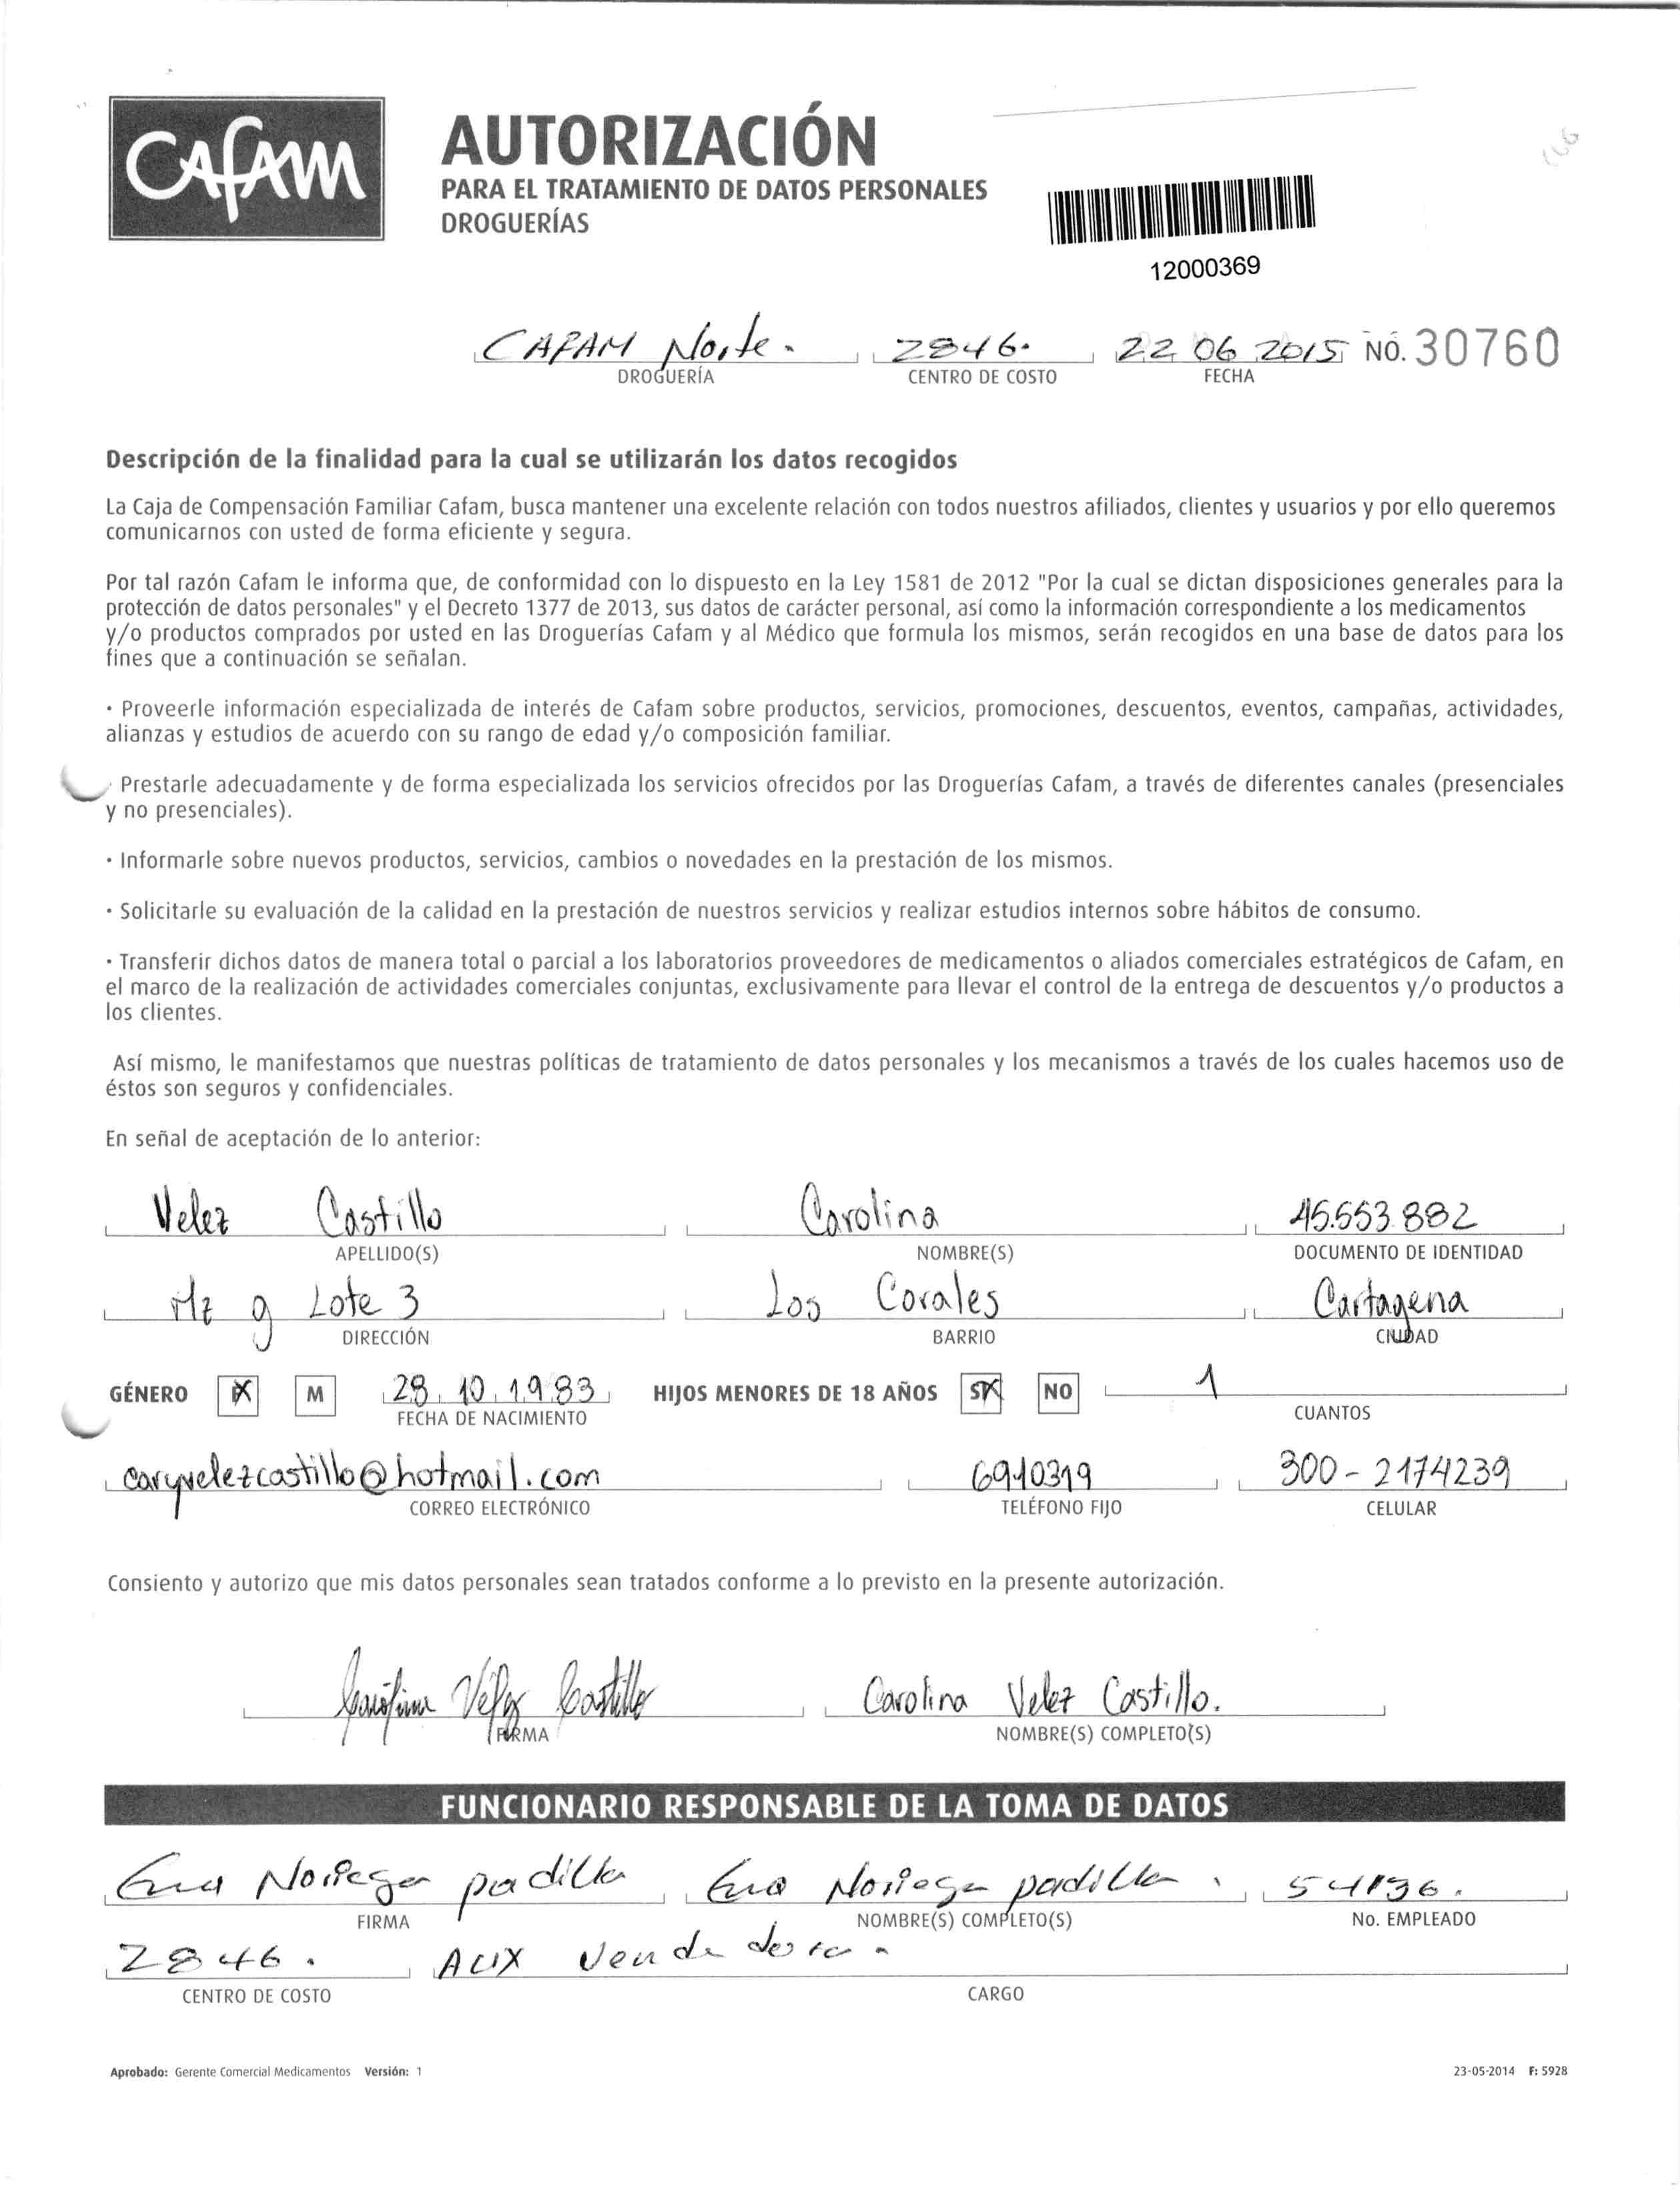 CAFAM
AUTORIZACIÓN
PARA EL TRATAMIENTO DE DATOS PERSONALES
DROGUERÍAS
12000369
CAFAM Norte. 2846. 22 06 2015 NO. 30760
DROGUERÍA CENTRO DE COSTO FECHA
Descripción de la finalidad para la cual se utilizarán los datos recogidos
La Caja de Compensación Familiar Cafam, busca mantener una excelente relación con todos nuestros afiliados, clientes y usuarios y por ello queremos
comunicarnos con usted de forma eficiente y segura.
Por tal razón Cafam le informa que, de conformidad con lo dispuesto en la Ley 1581 de 2012 "Por la cual se dictan disposiciones generales para la
protección de datos personales" y el Decreto 1377 de 2013, sus datos de carácter personal, así como la información correspondiente a los medicamentos
y/o productos comprados por usted en las Droguerías Cafam y al Médico que formula los mismos, serán recogidos en una base de datos para los
fines que a continuación se señalan.
· Proveerle información especializada de interés de Cafam sobre productos, servicios, promociones, descuentos, eventos, campañas, actividades,
alianzas y estudios de acuerdo con su rango de edad y/o composición familiar.
· Prestarle adecuadamente y de forma especializada los servicios ofrecidos por las Droguerías Cafam, a través de diferentes canales (presenciales
y no presenciales).
· Informarle sobre nuevos productos, servicios, cambios o novedades en la prestación de los mismos.
· Solicitarle su evaluación de la calidad en la prestación de nuestros servicios y realizar estudios internos sobre hábitos de consumo.
· Transferir dichos datos de manera total o parcial a los laboratorios proveedores de medicamentos o aliados comerciales estratégicos de Cafam, en
el marco de la realización de actividades comerciales conjuntas, exclusivamente para llevar el control de la entrega de descuentos y/o productos a
los clientes.
Así mismo, le manifestamos que nuestras políticas de tratamiento de datos personales y los mecanismos a través de los cuales hacemos uso de
éstos son seguros y confidenciales.
En señal de aceptación de lo anterior:
Velez Castillo Carolina 45.553.882
APELLIDO(S) NOMBRE(S) DOCUMENTO DE IDENTIDAD
Mz g Lote 3 Los Corales Cartagena
DIRECCIÓN BARRIO CIUDAD
GÉNERO X M 28 10 1983 HIJOS MENORES DE 18 AÑOS SI X NO 1
FECHA DE NACIMIENTO CUANTOS
caryvelezcastillo@hotmail.com 6910319 300-2174239
CORREO ELECTRÓNICO TELÉFONO FIJO CELULAR
Consiento y autorizo que mis datos personales sean tratados conforme a lo previsto en la presente autorización.
Carolina Velez Castillo Carolina Velez Castillo.
FIRMA NOMBRE(S) COMPLETO(S)
FUNCIONARIO RESPONSABLE DE LA TOMA DE DATOS
Noriega padilla Noriega padilla. 54136.
FIRMA NOMBRE(S) COMPLETO(S) No. EMPLEADO
2846. AUX Vendedora.
CENTRO DE COSTO CARGO
Aprobado: Gerente Comercial Medicamentos Versión: 1 23-05-2014 F: 5928